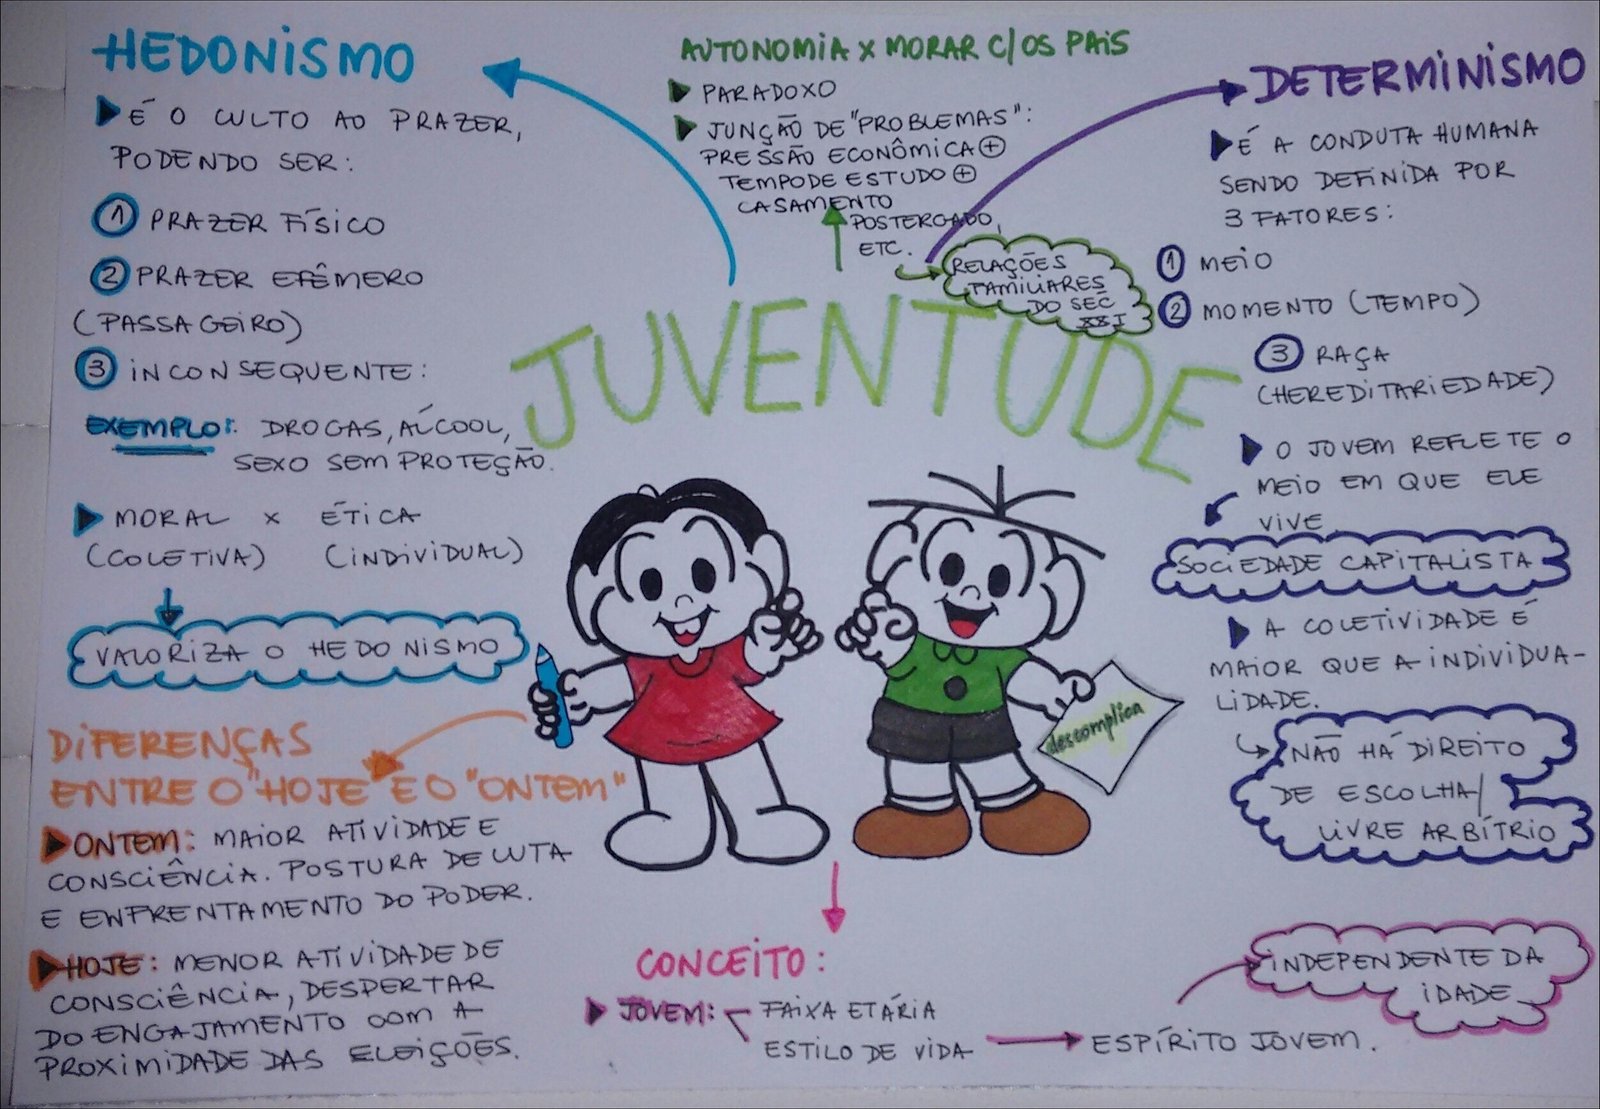 HEDONISMO
É O CULTO AO PRAZER,
PODENDO SER:
1 PRAZER FÍSICO
2 PRAZER EFÊMERO
(PASSAGEIRO)
3 INCONSEQUENTE:
EXEMPLO: DROGAS, ALCOOL,
SEXO SEM PROTEÇÃO.
MORAL X ÉTICA
(COLETIVA) (INDIVIDUAL)
VALORIZA O HEDONISMO
DIFERENÇAS
ENTRE O "HOJE" E O "ONTEM"
ONTEM: MAIOR ATIVIDADE E
CONSCIÊNCIA. POSTURA DE LUTA
E ENFRENTAMENTO DO PODER.
HOJE: MENOR ATIVIDADE DE
CONSCIÊNCIA, DESPERTAR
DO ENGAJAMENTO COM A
PROXIMIDADE DAS ELEIÇÕES.
AUTONOMIA X MORAR C/ OS PAIS
PARADOXO
JUNÇÃO DE "PROBLEMAS":
PRESSÃO ECONÔMICA +
TEMPO DE ESTUDO +
CASAMENTO
POSTERGADO,
ETC.
RELAÇÕES
FAMILIARES
DO SEC
XXI
JUVENTUDE
descomplica
CONCEITO:
JOVEM: FAIXA ETÁRIA
ESTILO DE VIDA
ESPÍRITO JOVEM.
INDEPENDENTE DA
IDADE
DETERMINISMO
É A CONDUTA HUMANA
SENDO DEFINIDA POR
3 FATORES:
1 MEIO
2 MOMENTO (TEMPO)
3 RAÇA
(HEREDITARIEDADE)
O JOVEM REFLETE O
MEIO EM QUE ELE
VIVE
SOCIEDADE CAPITALISTA
A COLETIVIDADE É
MAIOR QUE A INDIVIDUA-
LIDADE.
NÃO HÁ DIREITO
DE ESCOLHA/
LIVRE ARBÍTRIO